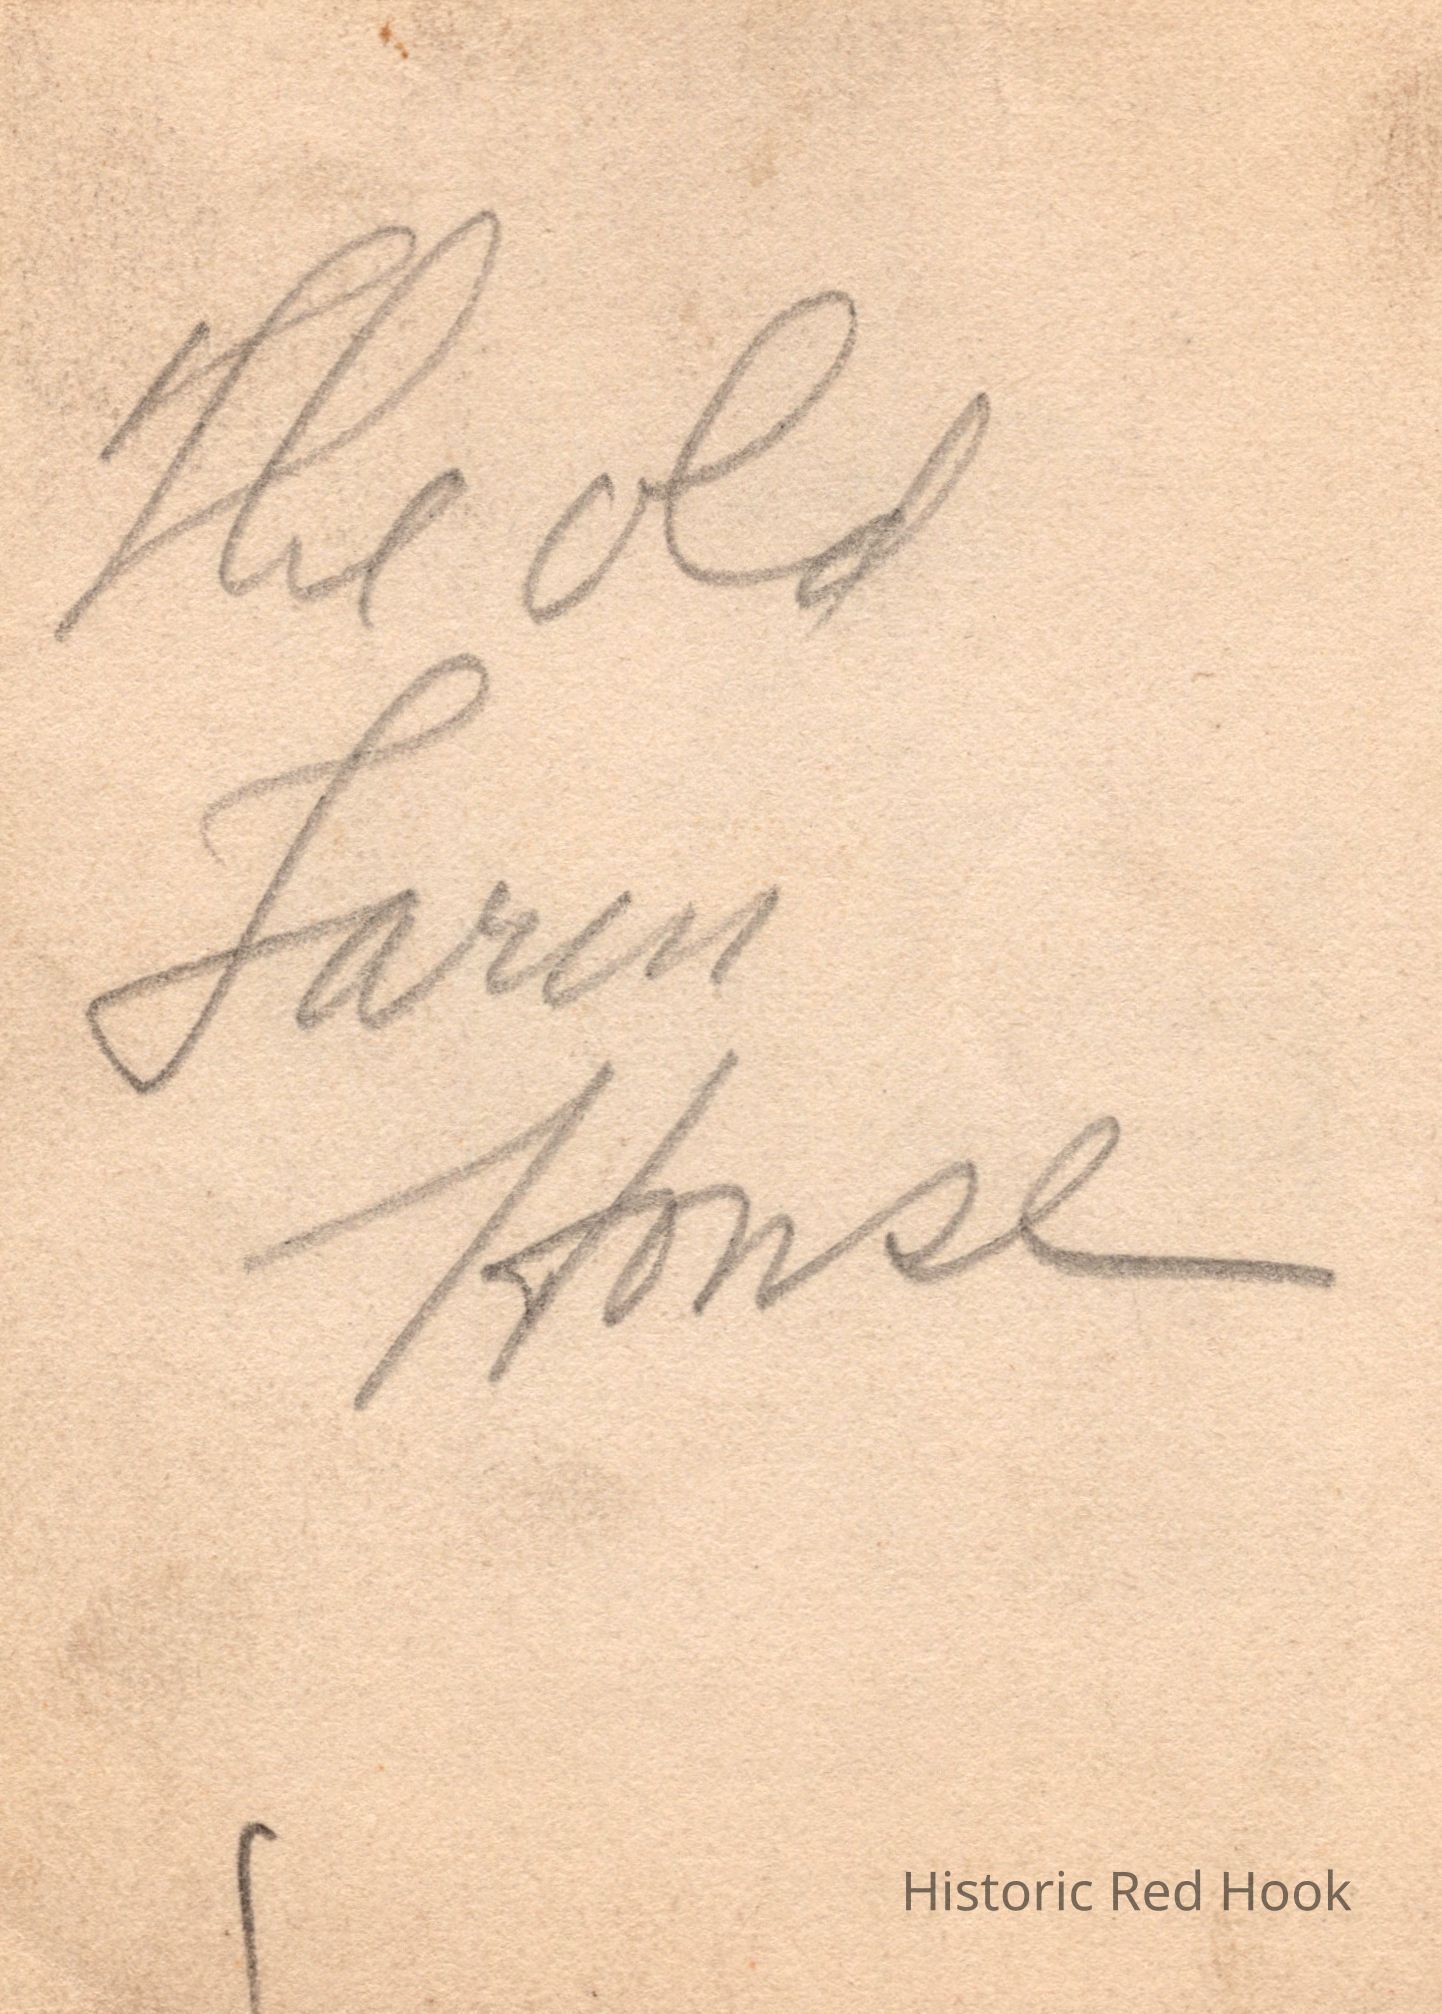 The old
Farm
House
Historic Red Hook